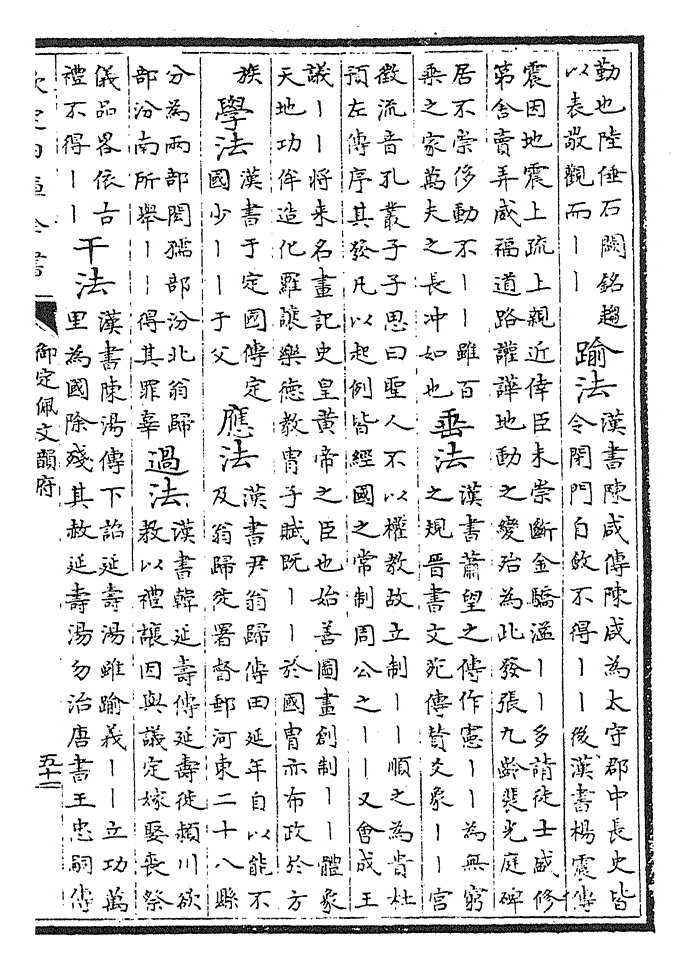 勤也陸倕石闕銘趨
以表敬觀而丨丨
踰法
漢書陳咸傳陳咸為太守郡中長史皆
令閉門自斂不得丨丨後漢書楊震傳
震因地震上疏上親近倖臣未崇斷金驕溢丨丨多請徒士盛修
第舍賣弄威福道路讙譁地動之變殆為此發張九齡裴光庭碑
居不崇侈動不丨丨雖百
乘之家萬夫之長冲如也
垂法
漢書蕭望之傳作憲丨丨為無窮
之規晉書文苑傳贊爻象丨丨宫
徵流音孔叢子子思曰聖人不以權教故立制丨丨順之為貴杜
預左傳序其發凡以起例皆經國之常制周公之丨丨又會成王
議丨丨將来名畫記史皇黄帝之臣也始善圖畫創制丨丨體象
天地功侔造化羅讓樂徳教胄子賦既丨丨於國胄亦布政於方
族
學法
漢書于定國傳定
國少丨丨于父
應法
漢書尹翁歸傳田延年自以能不
及翁歸徙署督郵河東二十八縣
分為兩部閎孺部汾北翁歸
部汾南所舉丨丨得其罪辜
過法
漢書韓延壽傳延壽徙潁川欲
教以禮讓因與議定嫁娶喪祭
儀品畧依古
禮不得丨丨
干法
漢書陳湯傳下詔延壽湯雖踰義丨丨立功萬
里為國除殘其赦延壽湯勿治唐書王忠嗣傳
欽定四庫全書
御定佩文韻府
五十二